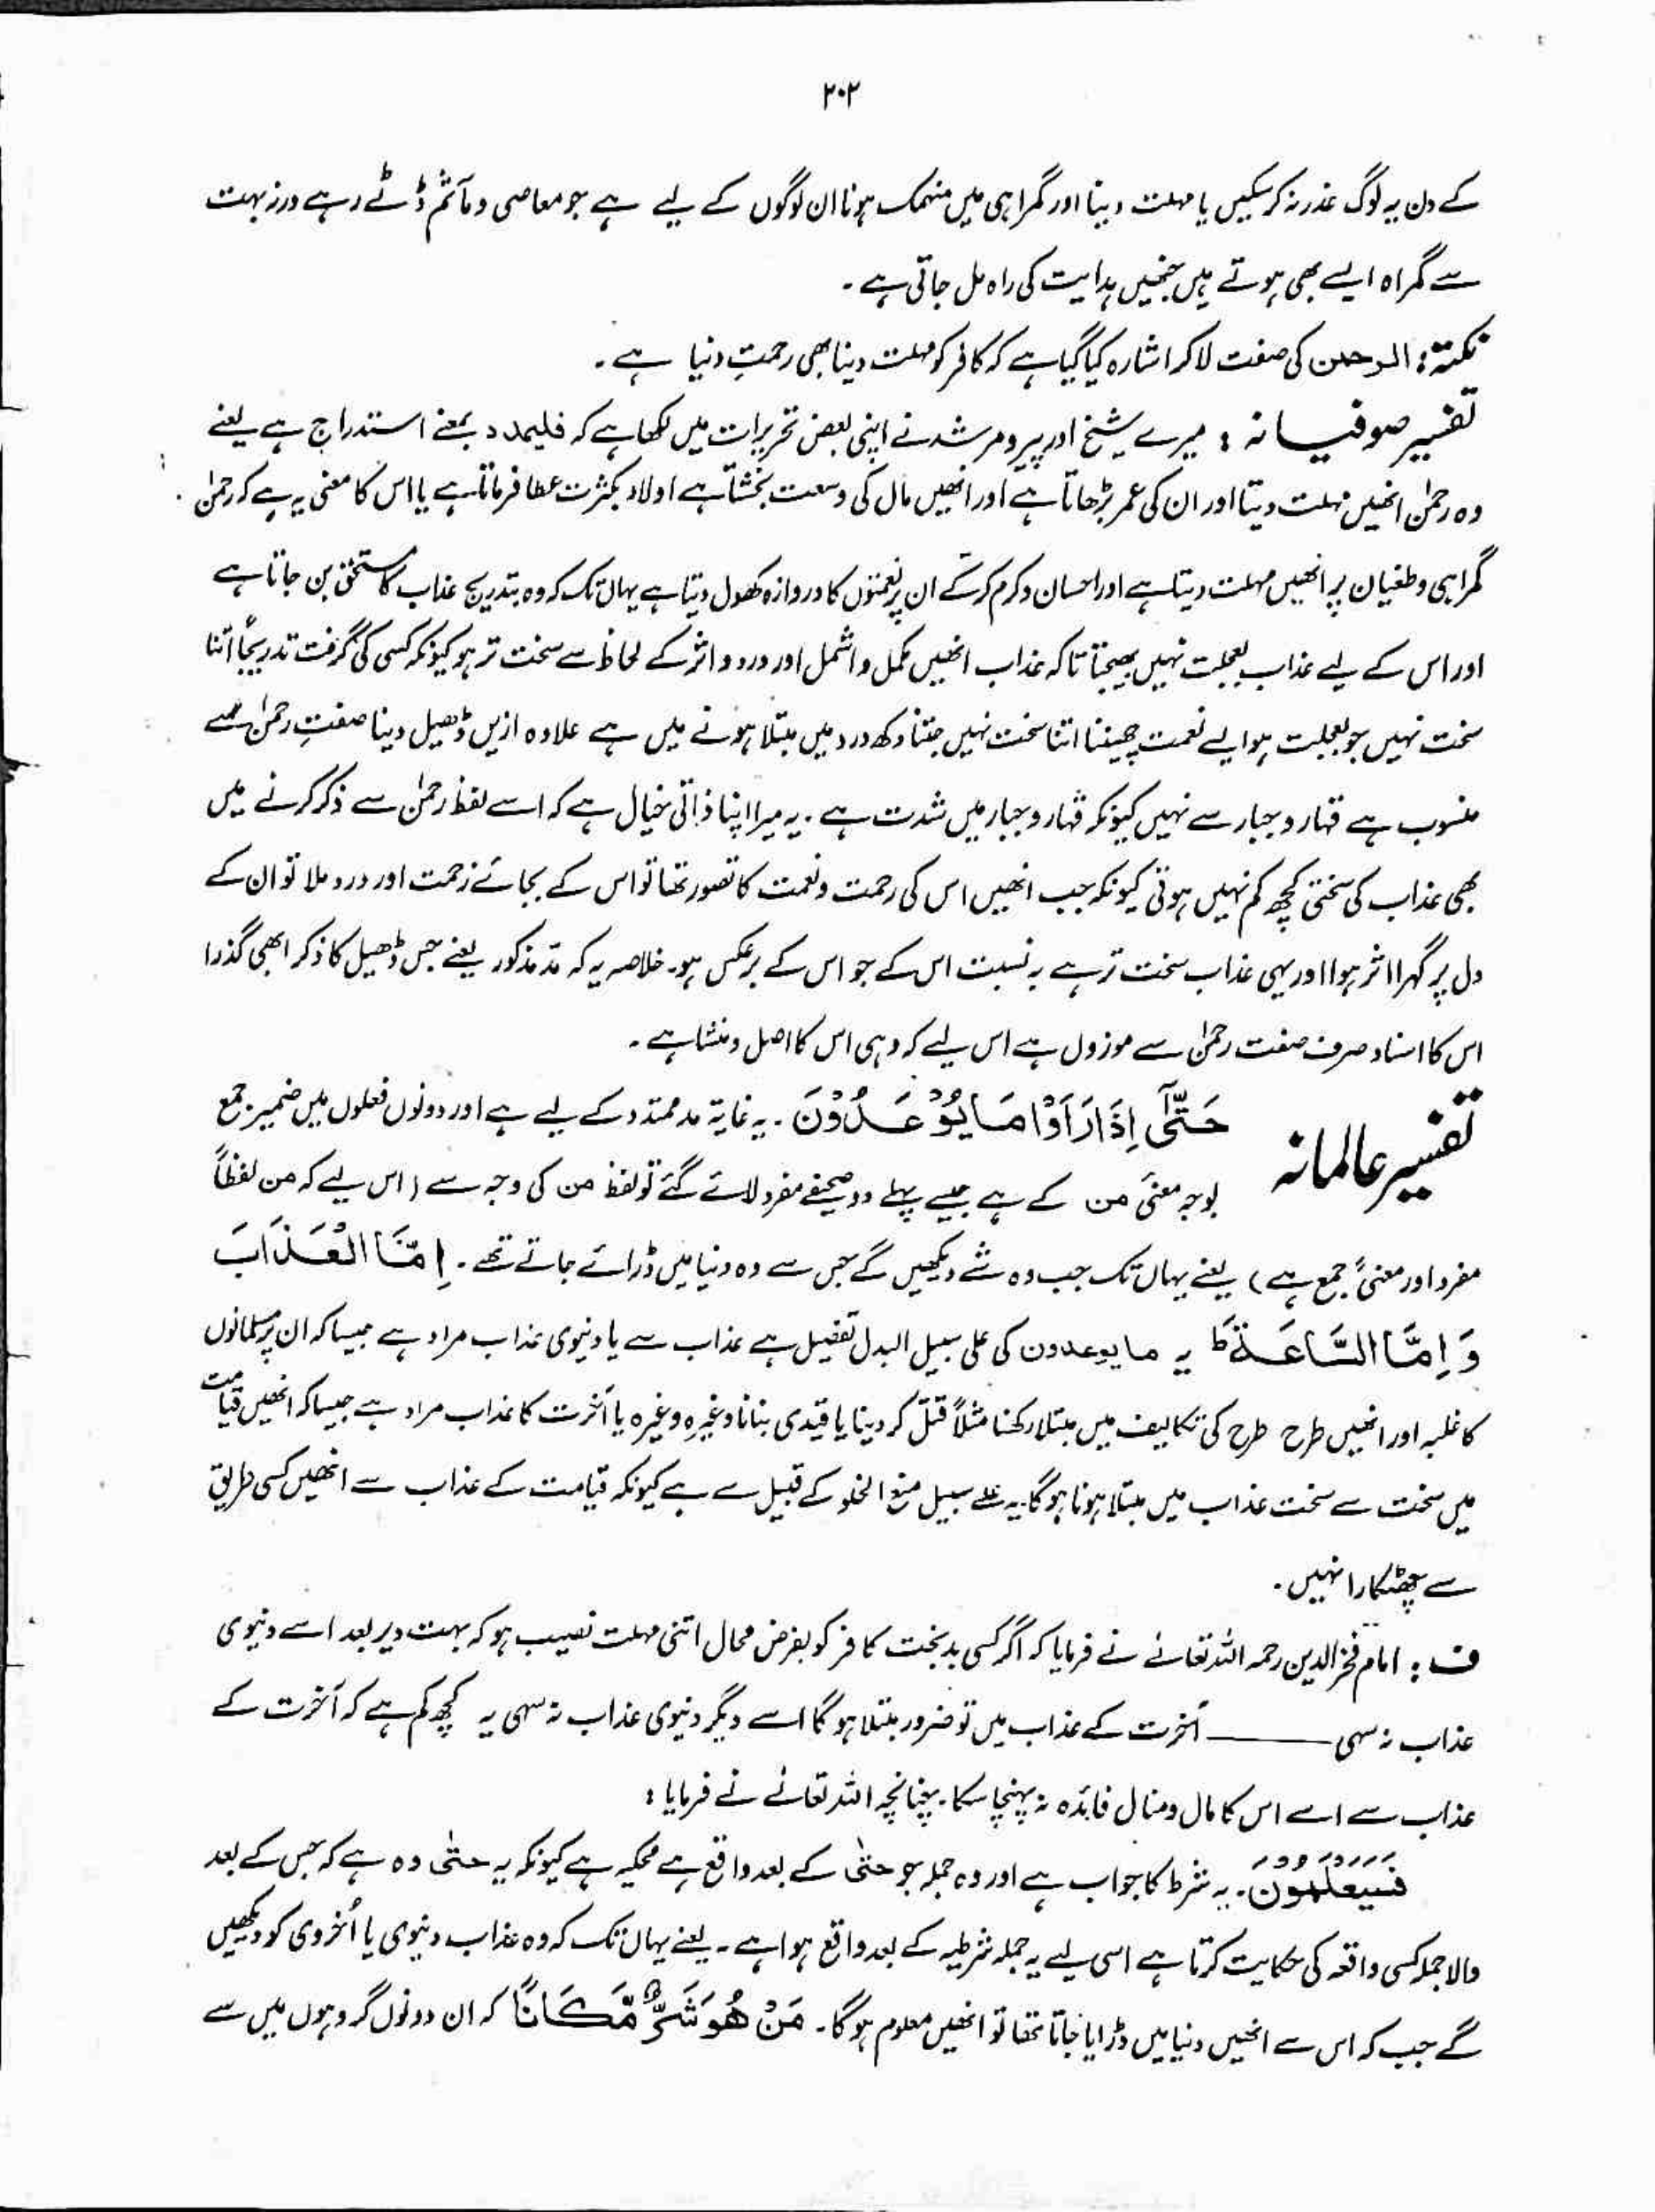 ۲۰۲
کے دن یہ لوگ عذر نہ کر سکیں یا مہلت دینا اور گمراہی میں منہمک ہونا ان لوگوں کے لیے ہے جو معاصی و مآثم ڈٹے رہے ورنہ بہت
سے گمراہ ایسے بھی ہوتے ہیں جنھیں ہدایت کی راہ مل جاتی ہے۔
نکتہ: الرحمن کی صفت لا کر اشارہ کیا گیا ہے کہ کافر کو مہلت دینا بھی رحمتِ دنیا ہے۔
تفسیر صوفیانہ : میرے شیخ اور پیر و مرشد نے اپنی بعض تحریرات میں لکھا ہے کہ فلیمدد بمعنے استدراج ہے یعنے
وہ رحمٰن انھیں مہلت دیتا اور ان کی عمر بڑھاتا ہے اور انھیں مال کی وسعت بخشتا ہے اولاد بکثرت عطا فرماتا ہے یا اس کا معنی یہ ہے کہ رحمٰن
گمراہی و طغیان پر انھیں مہلت دیتا ہے اور احسان و کرم کر کے ان پر نعمتوں کا دروازہ کھول دیتا ہے یہاں تک کہ وہ بتدریج عذاب کا مستحق بن جاتا ہے
اور اس کے لیے عذاب بعجلت نہیں بھیجتا تاکہ عذاب انھیں مکمل و اشمل اور درد و اثر کے لحاظ سے سخت تر ہو کیونکہ کسی کی گرفت تدریجاً اتنا
سخت نہیں جو بعجلت ہو ایسے نعمت چھیننا اتنا سخت نہیں جتنا دکھ درد میں مبتلا ہونے میں ہے علاوہ ازیں ڈھیل دینا صفتِ رحمٰن سے
منسوب ہے قہار و جبار سے نہیں کیونکہ قہار و جبار میں شدت ہے۔ یہ میرا اپنا ذاتی خیال ہے کہ اسے لفظ رحمٰن سے ذکر کرنے میں
بھی عذاب کی سختی کچھ کم نہیں ہوتی کیونکہ جب انھیں اس کی رحمت و نعمت کا تصور تھا تو اس کے بجائے زحمت اور درد ملا تو ان کے
دل پر گہرا اثر ہوا اور یہی عذاب سخت تر ہے بہ نسبت اس کے جو اس کے برعکس ہو۔ خلاصہ یہ کہ مذکور یعنے جس ڈھیل کا ذکر ابھی گذرا
اس کا اسناد صرف صفت رحمٰن سے موزوں ہے اس لیے کہ وہی اس کا اصل و منشا ہے۔
تفسیر عالمانہ حَتّٰٓی اِذَا رَاَوْا مَا یُوْعَدُوْنَ۔ یہ غایۃ مد ممتدد کے لیے ہے اور دونوں فعلوں میں ضمیر جمع
بوجہ معنیٰ من کے ہے جیسے پہلے دو صیغے مفرد لائے گئے تو لفظ من کی وجہ سے (اس لیے کہ من لفظاً
مفرد اور معنیً جمع ہے) یعنے یہاں تک جب وہ شے دیکھیں گے جس سے وہ دنیا میں ڈرائے جاتے تھے۔ اِمَّا الْعَذَابَ
وَ اِمَّا السَّاعَةَ ؕ یہ ما یوعدون کی علی سبیل البدل تفصیل ہے عذاب سے یا دنیوی عذاب مراد ہے جیسا کہ ان پر مسلمانوں
کا غلبہ اور انھیں طرح طرح کی تکالیف میں مبتلا رکھنا مثلاً قتل کر دینا یا قیدی بنانا وغیرہ وغیرہ یا آخرت کا عذاب مراد ہے جیسا کہ انھیں قیامت
میں سخت سے سخت عذاب میں مبتلا ہونا ہوگا۔ یہ علے سبیل منع الخلو کے قبیل سے ہے کیونکہ قیامت کے عذاب سے انھیں کسی طریق
سے چھٹکارا نہیں۔
ف : امام فخر الدین رحمہ اللہ تعالےٰ نے فرمایا کہ اگر کسی بدبخت کافر کو بفرض محال اتنی مہلت نصیب ہو کہ بہت دیر بعد اسے دنیوی
عذاب نہ سہی ــــــــ آخرت کے عذاب میں تو ضرور مبتلا ہو گا اسے دیگر دنیوی عذاب نہ سہی یہ کچھ کم ہے کہ آخرت کے
عذاب سے اسے اس کا مال و منال فائدہ نہ پہنچا سکا۔ چنانچہ اللہ تعالےٰ نے فرمایا :
فَسَیَعْلَمُوْنَ۔ یہ شرط کا جواب ہے اور وہ جملہ جو حتّٰی کے بعد واقع ہے محکیہ ہے کیونکہ یہ حتّٰی وہ ہے کہ جس کے بعد
والا جملہ کسی واقعہ کی حکایت کرتا ہے اسی لیے یہ جملہ شرطیہ کے بعد واقع ہوا ہے۔ یعنے یہاں تک کہ وہ عذاب دنیوی یا اُخروی کو دیکھیں
گے جب کہ اس سے انھیں دنیا میں ڈرایا جاتا تھا تو انھیں معلوم ہو گا۔ مَنْ هُوَ شَرٌّ مَّكَانًا کہ ان دونوں گروہوں میں سے